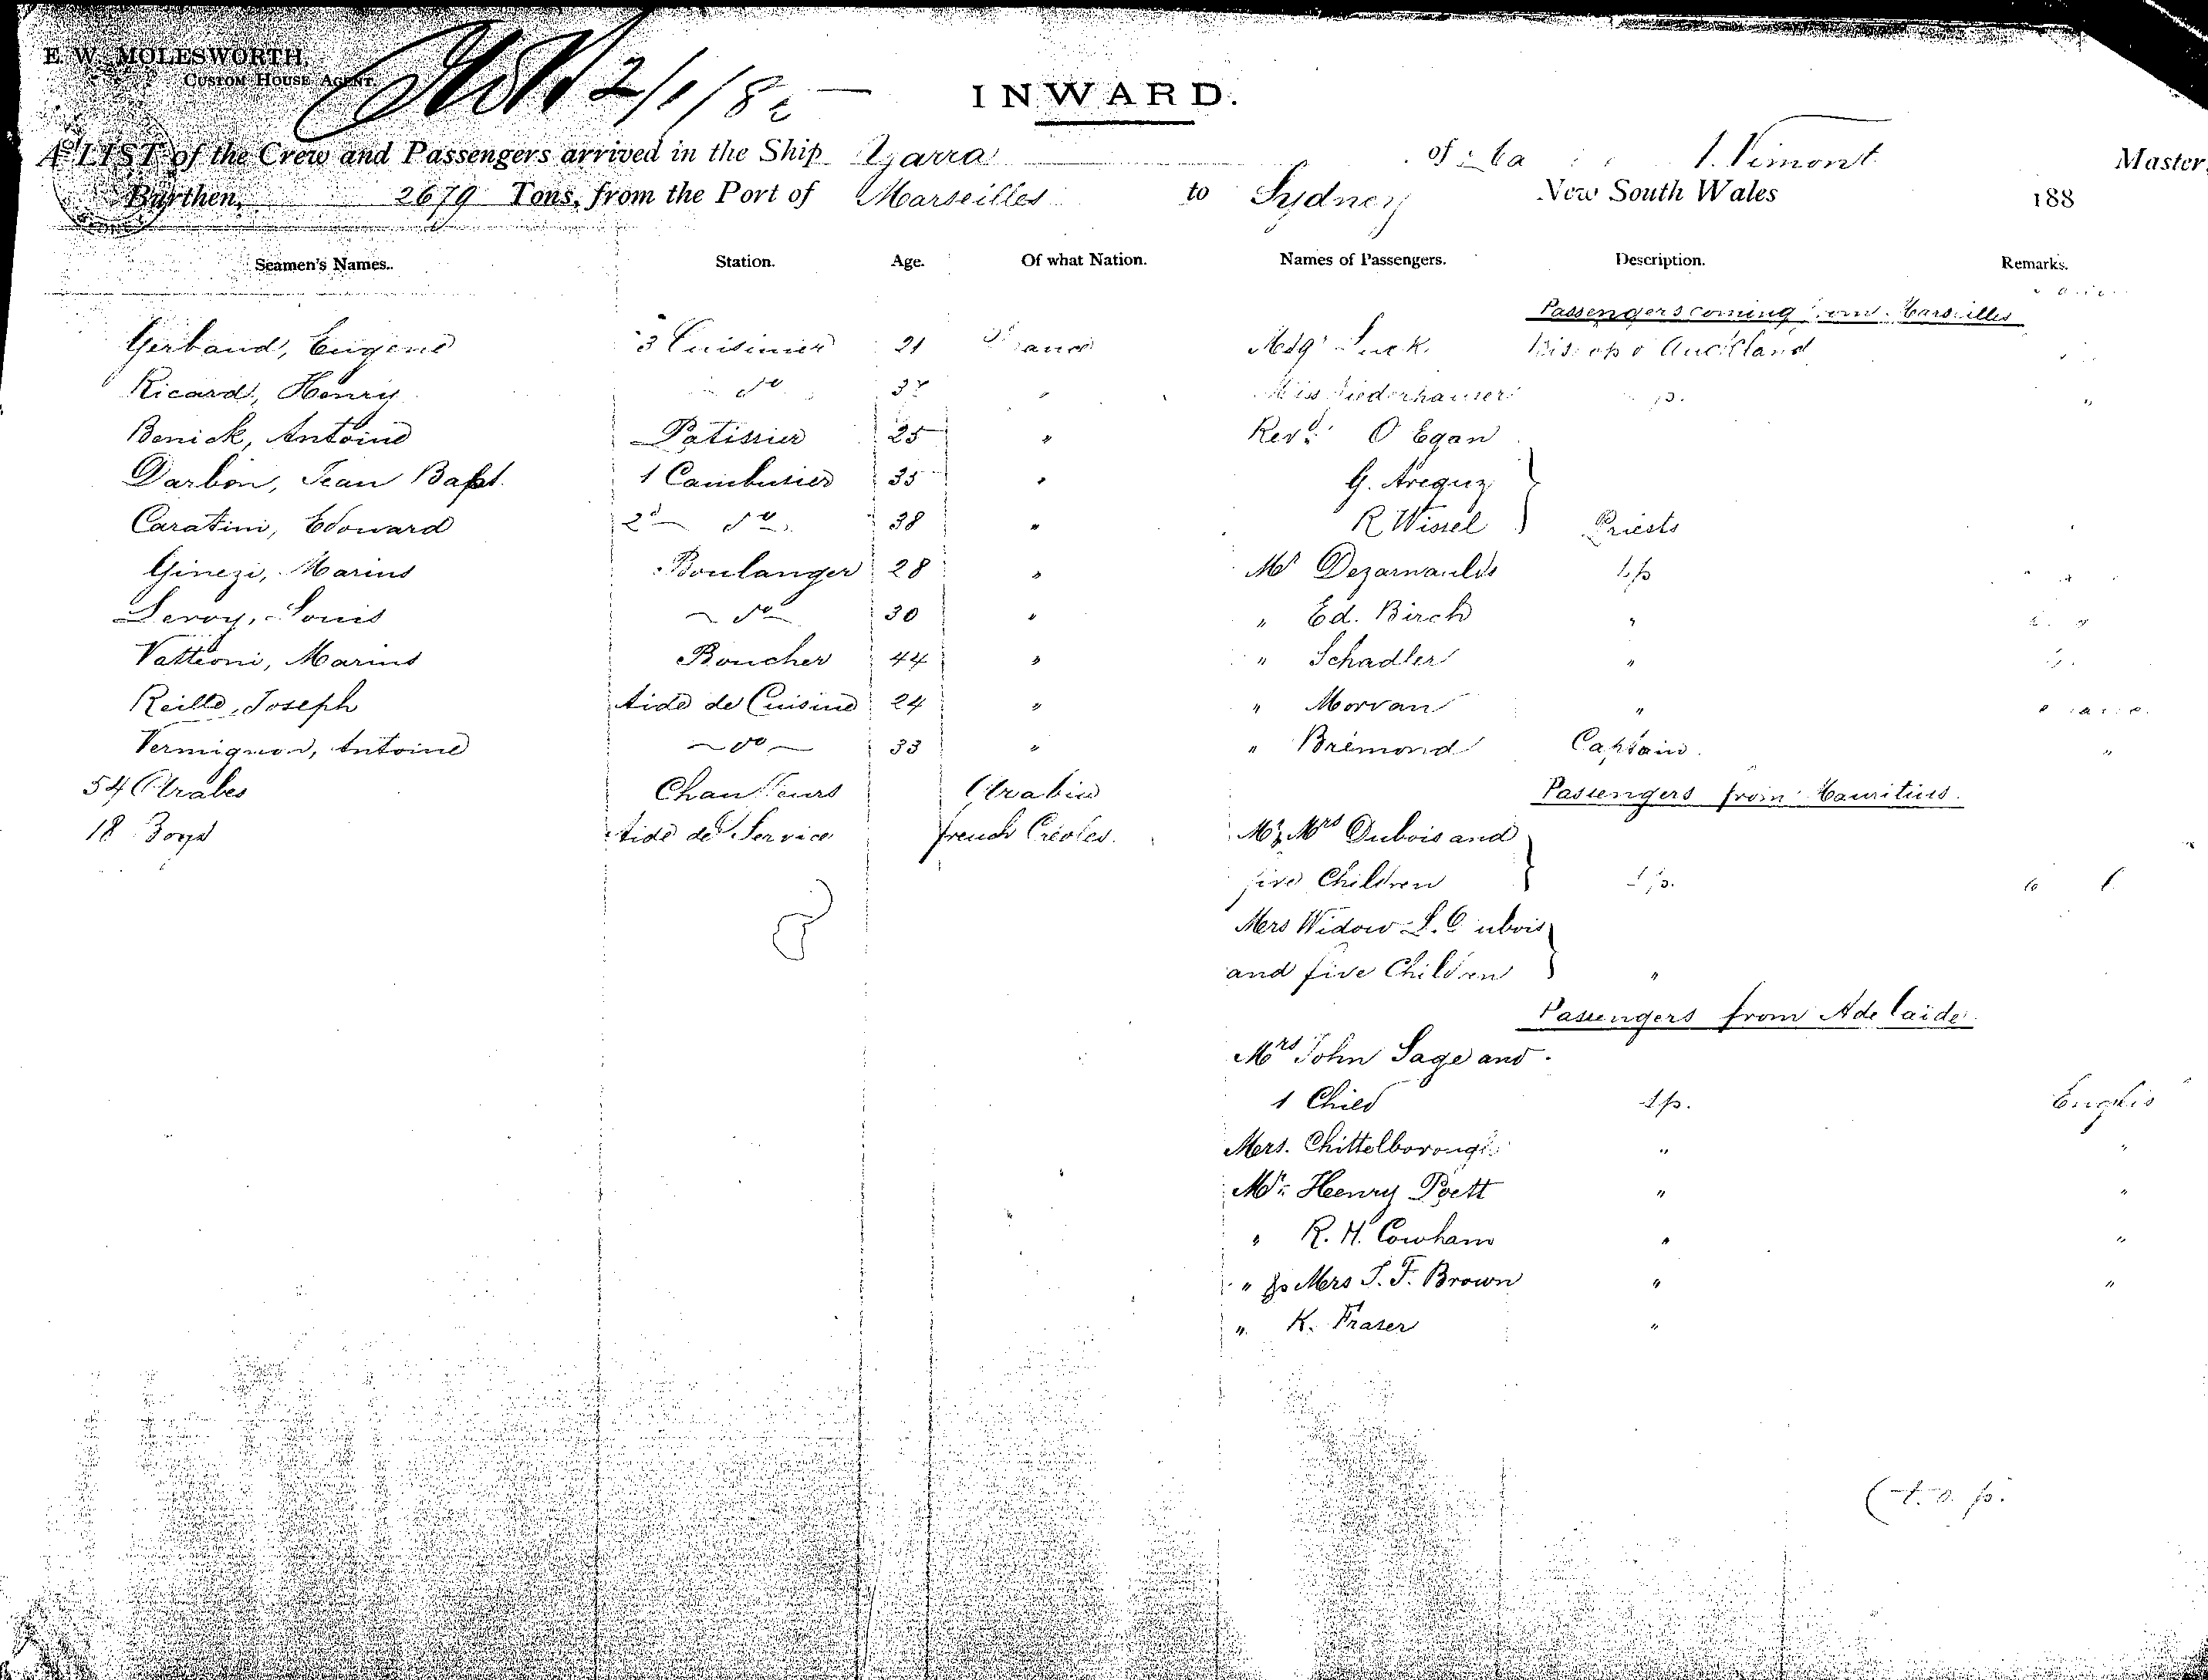 E. W. MOLESWORTH,
CUSTOM HOUSE AGENT.
2/1/8
INWARD.
A LIST of the Crew and Passengers arrived in the Ship Yarra of Vimont Master,
Burthen, 2679 Tons, from the Port of Marseilles to Sydney New South Wales 188
Seamen's Names. Station. Age. Of what Nation. Names of Passengers. Description. Remarks.
Passengers coming Marseilles
Gerbaud, Eugene 3 Cuisinier 21 France Luck. Bishop Auckland
Ricard, Henry do 37 " Miss Niederhauser "
Benick, Antoine Patissier 25 " Revd. O Egan
Darbon, Jean Bapt. 1 Cambusier 35 " G. }
Caratini, Edouard 2d do 38 " R Wissel } Priests
Ginezi, Marius Boulanger 28 " Mr
Leroy, Louis do 30 " " Ed. Birch "
Vatteoni, Marius Boucher 44 " " Schadler "
Reille, Joseph Aide de Cuisine 24 " " Morvan "
Vermignon, Antoine do 33 " " Brémond Captain. "
54 Arabes Chauffeurs Arabia Passengers from Mauritius.
18 Boys Aide de Service french Créoles. Mr & Mrs Dubois and }
five Children }
Mers Widow L. Dubois }
and five Children } "
Passengers from Adelaide
Mrs John Sage and
1 Child 1 p. Englis
Mers. Chittelborough " "
Mr. Henry Poett " "
" R. H. Cowham " "
" & Mers J. F. Brown " "
" K. Fraser "
(t. o. p.